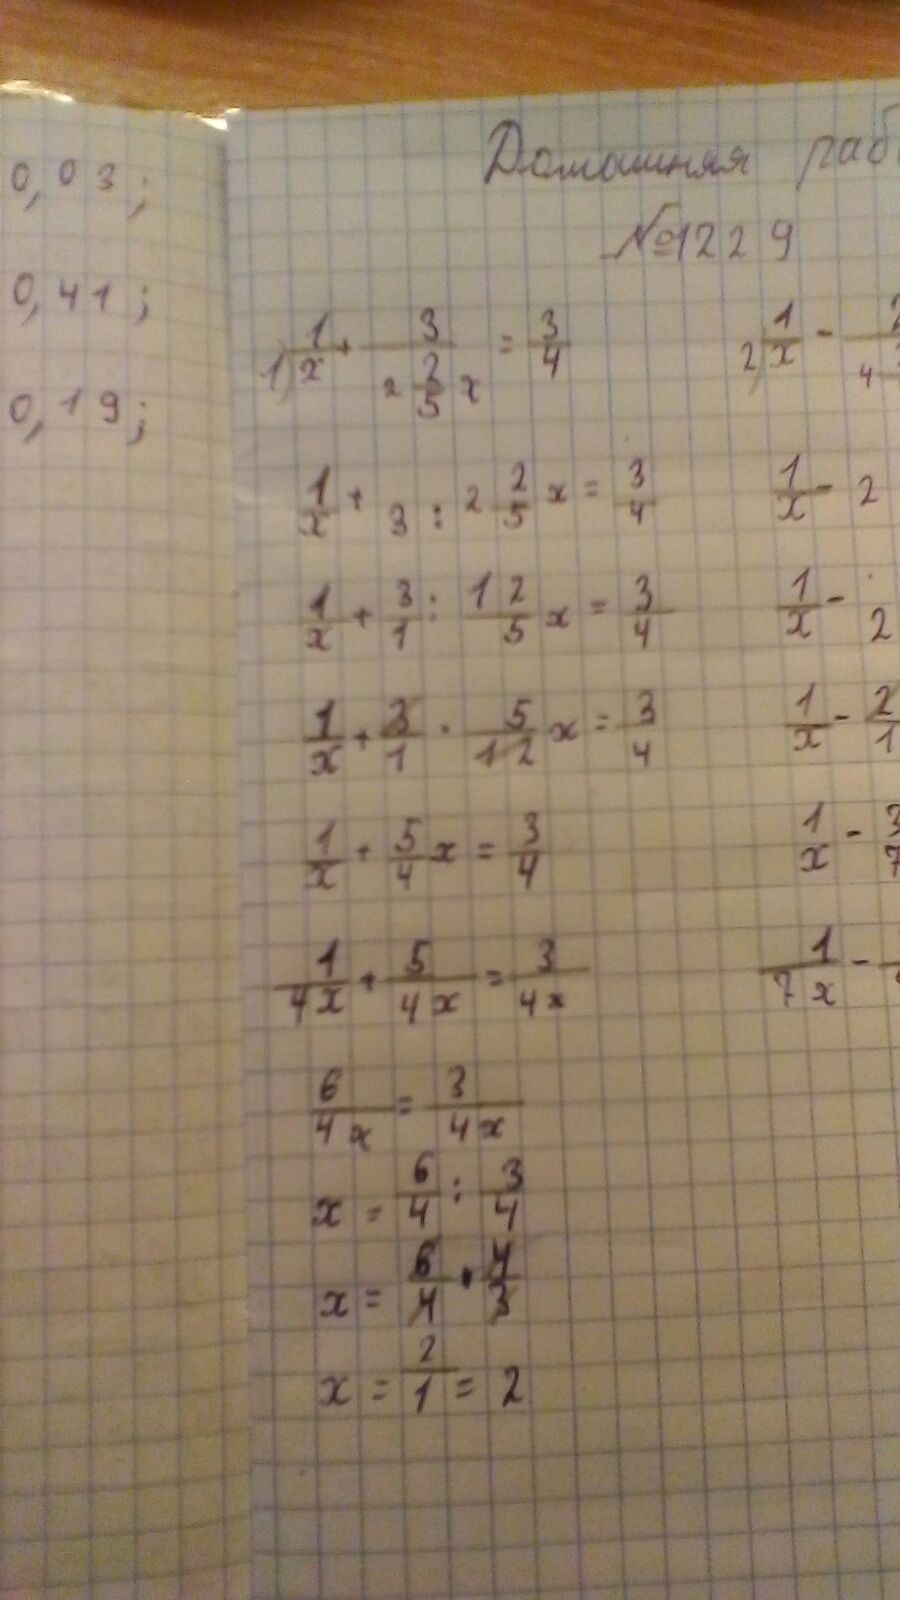 0,03;
0,41;
0,19;
Домашняя раб
№1229
1) 1/x + 3/(2 2/5 x) = 3/4
1/x + 3 : 2 2/5 x = 3/4
1/x + 3/1 : 12/5 x = 3/4
1/x + 3/1 · 5/12 x = 3/4
1/x + 5/4 x = 3/4
1/4x + 5/4x = 3/4x
6/4x = 3/4x
x = 6/4 : 3/4
x = 6/4 · 4/3
x = 2/1 = 2
2) 1/x - 2
1/x - 2
1/x - 2
1/x - 2/1
1/x - 3/7
1/7x -